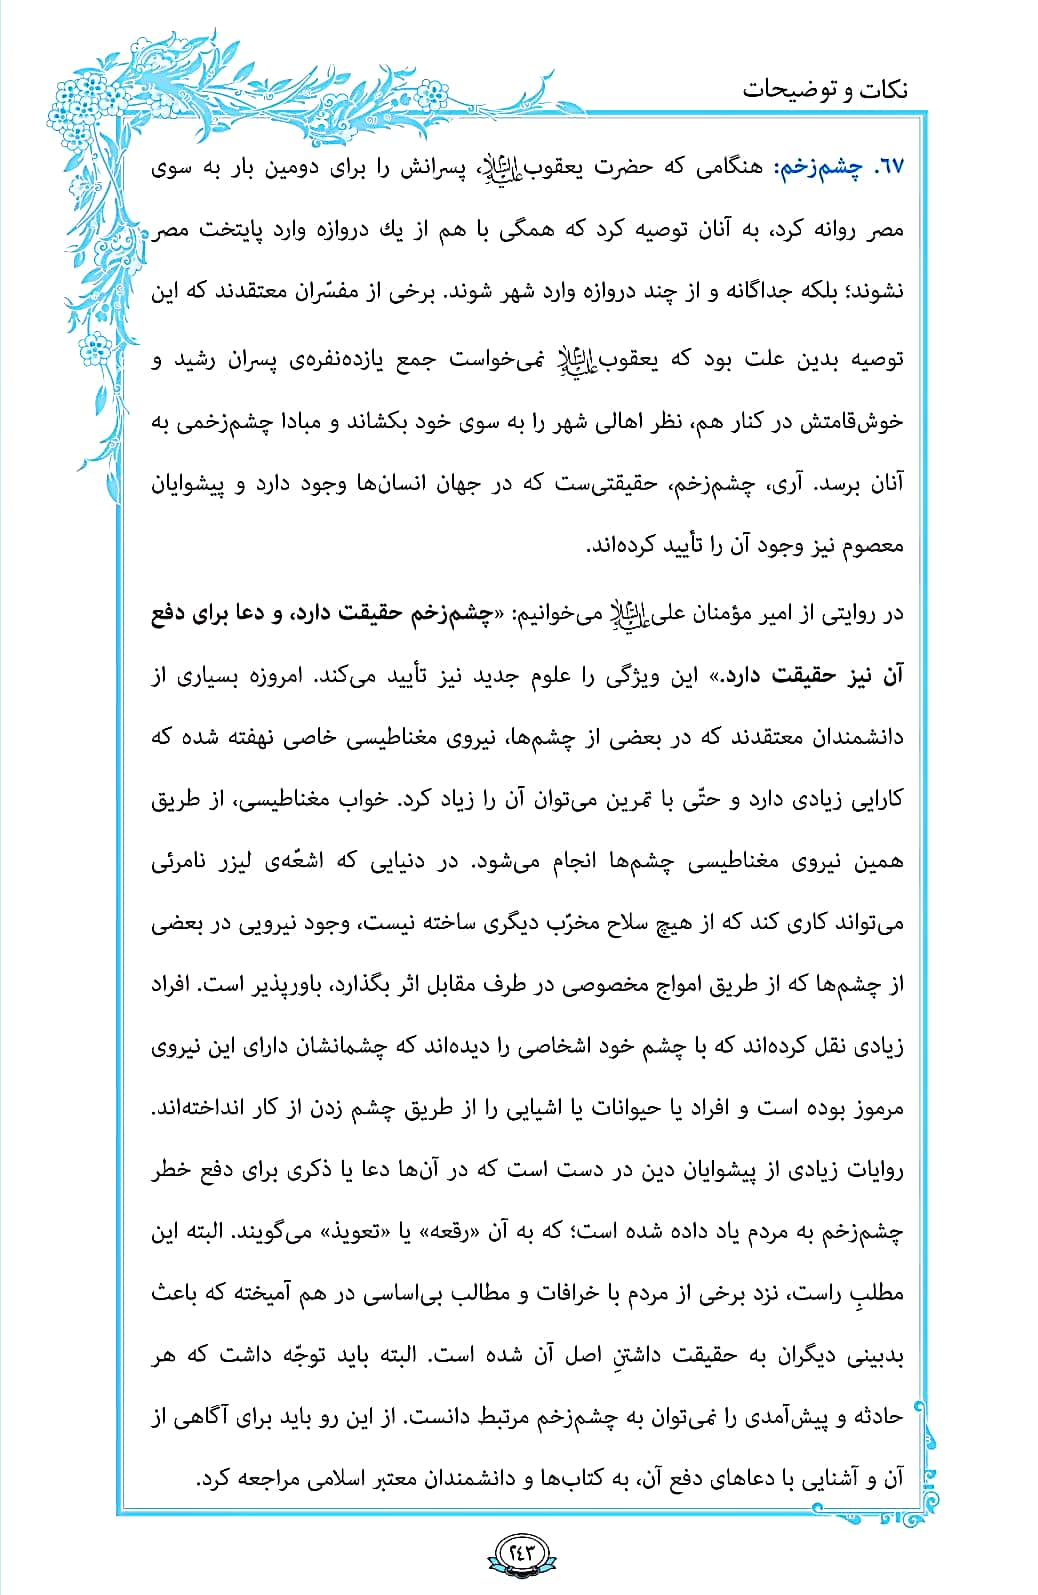 نکات و توضیحات
۶۷. چشم‌زخم: هنگامی که حضرت یعقوب علیه‌السلام، پسرانش را برای دومین بار به سوی
مصر روانه کرد، به آنان توصیه کرد که همگی با هم از یك دروازه وارد پایتخت مصر
نشوند؛ بلکه جداگانه و از چند دروازه وارد شهر شوند. برخی از مفسّران معتقدند که این
توصیه بدین علت بود که یعقوب علیه‌السلام نمی‌خواست جمع یازده‌نفره‌ی پسران رشید و
خوش‌قامتش در کنار هم، نظر اهالی شهر را به سوی خود بکشاند و مبادا چشم‌زخمی به
آنان برسد. آری، چشم‌زخم، حقیقتی‌ست که در جهان انسان‌ها وجود دارد و پیشوایان
معصوم نیز وجود آن را تأیید کرده‌اند.
در روایتی از امیر مؤمنان علی علیه‌السلام می‌خوانیم: «چشم‌زخم حقیقت دارد، و دعا برای دفع
آن نیز حقیقت دارد.» این ویژگی را علوم جدید نیز تأیید می‌کند. امروزه بسیاری از
دانشمندان معتقدند که در بعضی از چشم‌ها، نیروی مغناطیسی خاصی نهفته شده که
کارایی زیادی دارد و حتّی با تمرین می‌توان آن را زیاد کرد. خواب مغناطیسی، از طریق
همین نیروی مغناطیسی چشم‌ها انجام می‌شود. در دنیایی که اشعّه‌ی لیزر نامرئی
می‌تواند کاری کند که از هیچ سلاح مخرّب دیگری ساخته نیست، وجود نیرویی در بعضی
از چشم‌ها که از طریق امواج مخصوصی در طرف مقابل اثر بگذارد، باورپذیر است. افراد
زیادی نقل کرده‌اند که با چشم خود اشخاصی را دیده‌اند که چشمانشان دارای این نیروی
مرموز بوده است و افراد یا حیوانات یا اشیایی را از طریق چشم زدن از کار انداخته‌اند.
روایات زیادی از پیشوایان دین در دست است که در آن‌ها دعا یا ذکری برای دفع خطر
چشم‌زخم به مردم یاد داده شده است؛ که به آن «رقعه» یا «تعویذ» می‌گویند. البته این
مطلبِ راست، نزد برخی از مردم با خرافات و مطالب بی‌اساسی در هم آمیخته که باعث
بدبینی دیگران به حقیقت داشتنِ اصل آن شده است. البته باید توجّه داشت که هر
حادثه و پیش‌آمدی را نمی‌توان به چشم‌زخم مرتبط دانست. از این رو باید برای آگاهی از
آن و آشنایی با دعاهای دفع آن، به کتاب‌ها و دانشمندان معتبر اسلامی مراجعه کرد.
۲۴۳